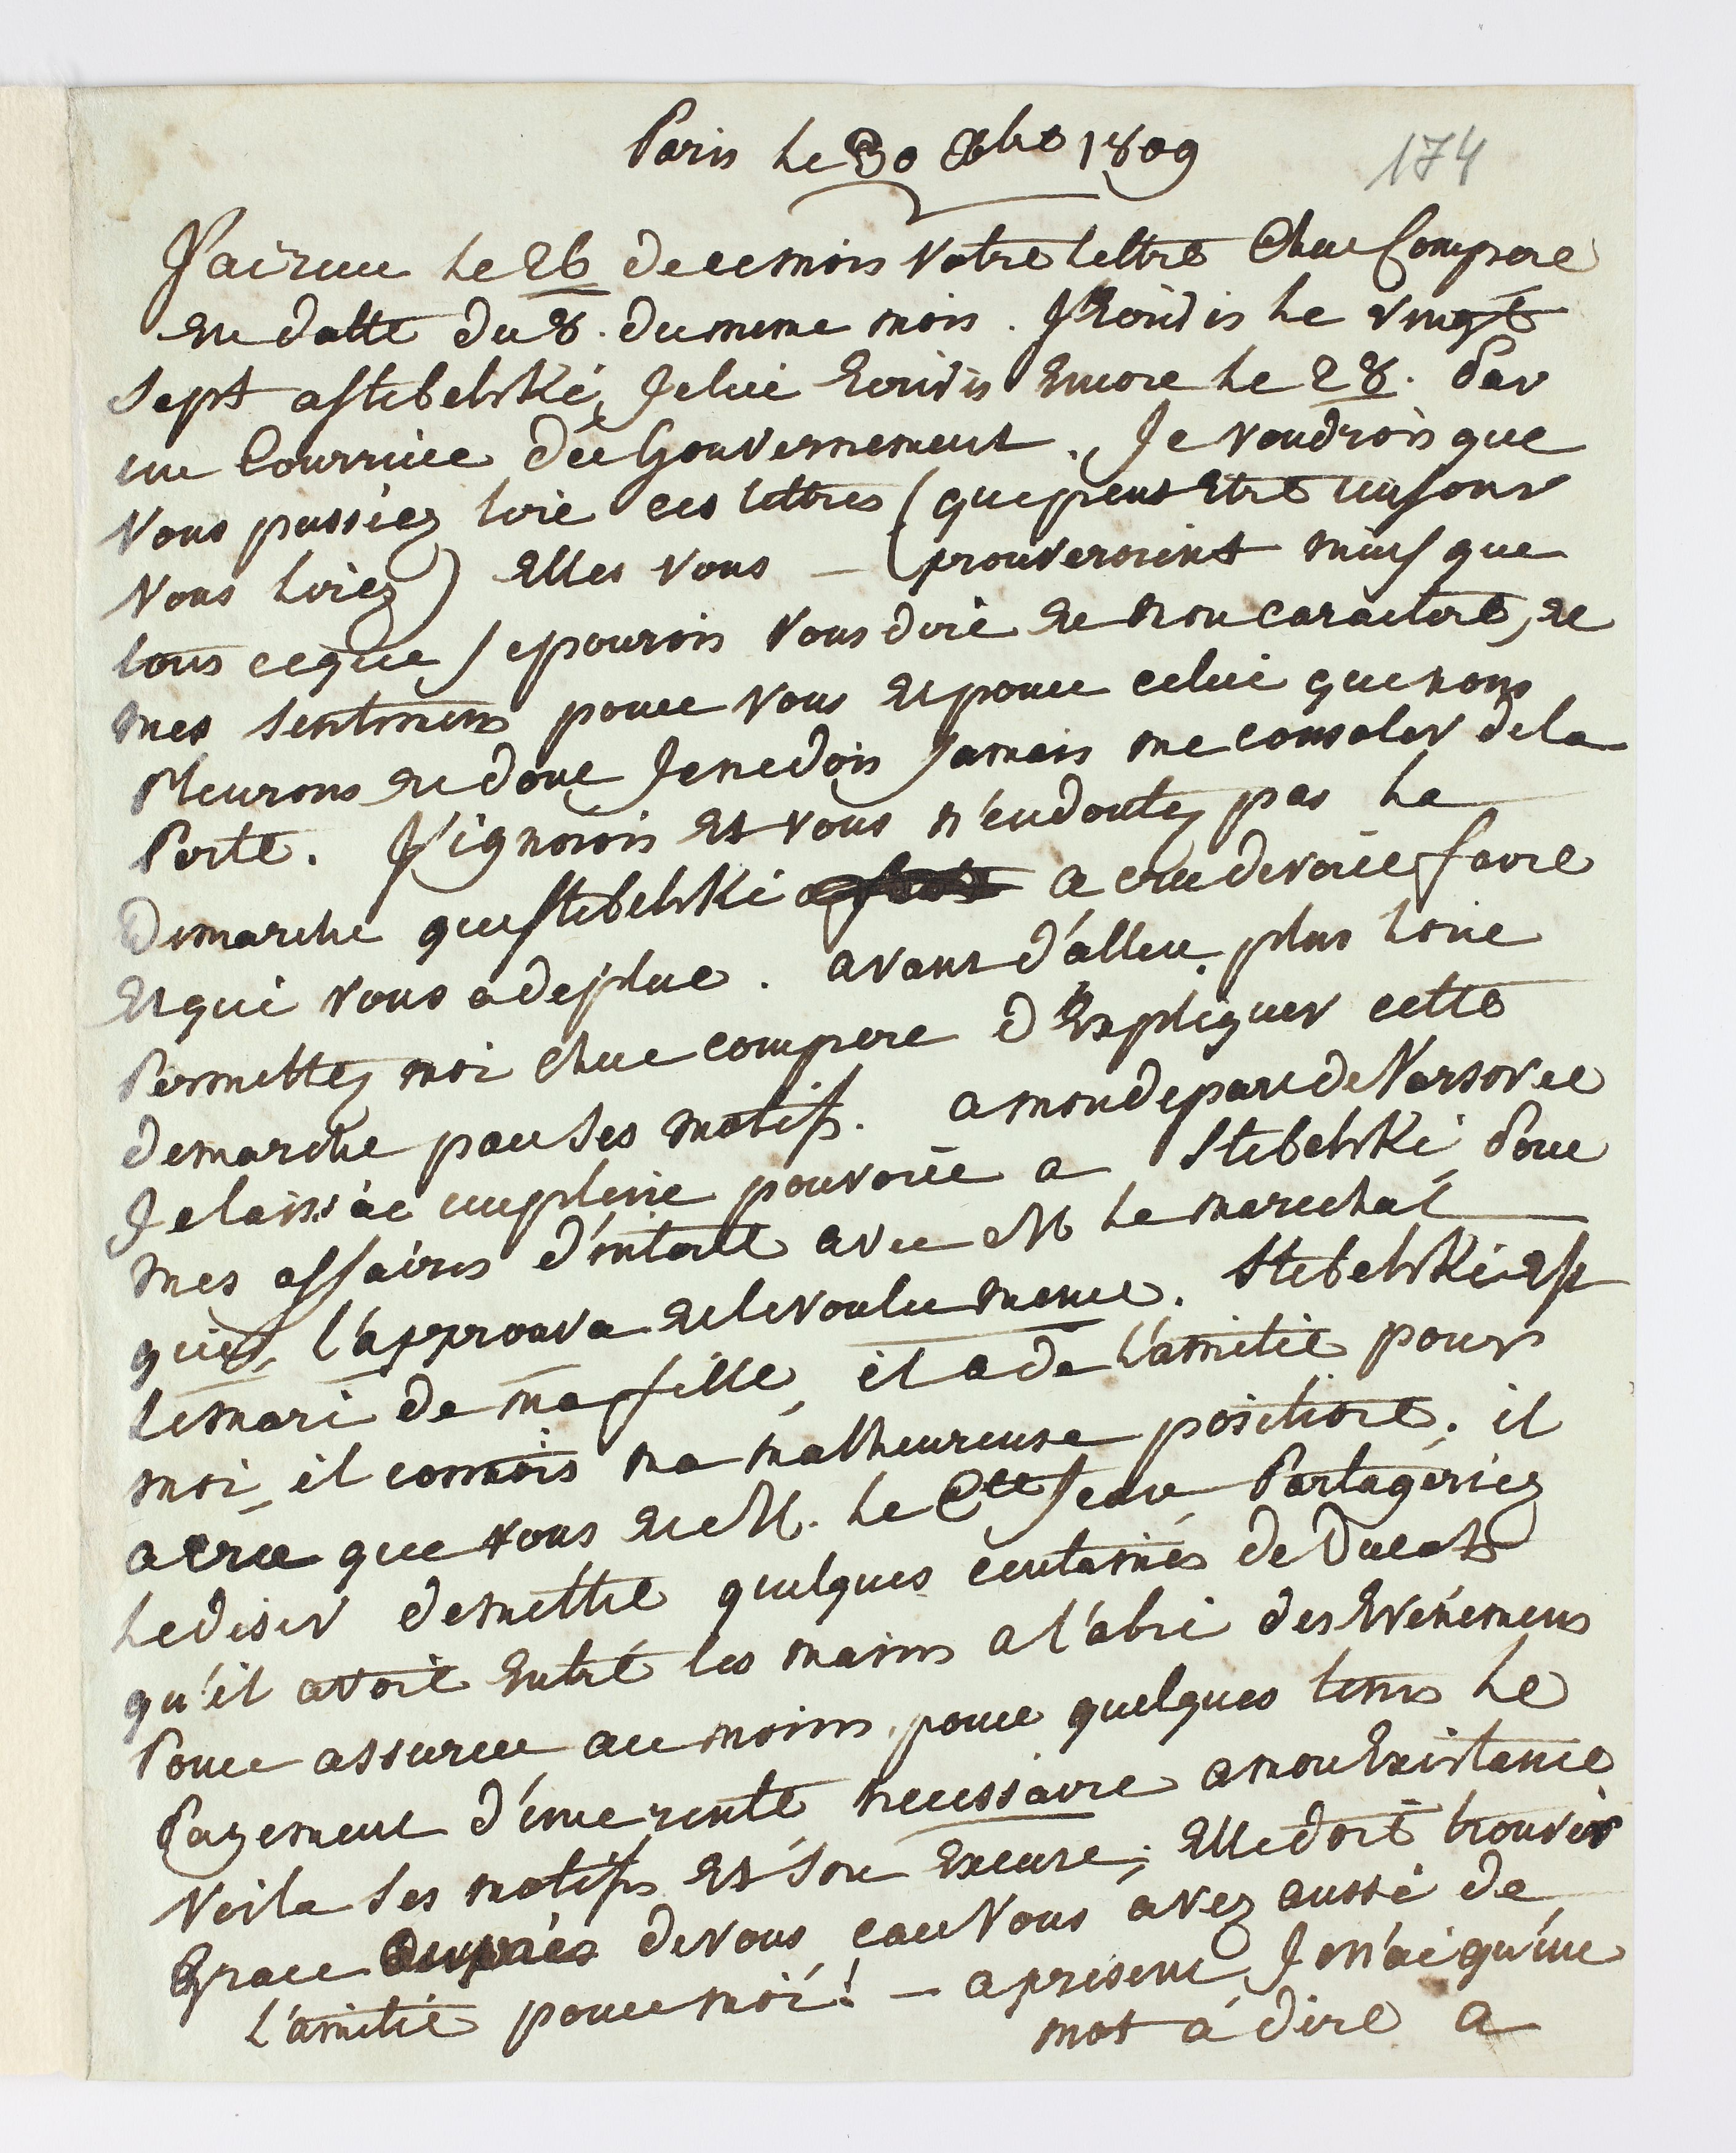 Paris le 30 Xbre 1809
174
J'ai recu le 26 de ce mois votre lettre cher Compere
en datte du 8. du meme mois. J'ecrivis le vingt
sept a Stebelski, je lui ecrivis encore le 28. par
un Courrier du Gouvernement. Je voudrois que
vous pussiez lire ces lettres (que peut etre un jour
vous lirez) elles vous — prouveroient mieux que
tous ce que je pourois vous dire et mon caractere, et
mes sentimens pour vous et pour celui que nous
pleurons et dont je ne dois jamais me consoler de la
Perte. J'ignorois et vous n'en doutez pas la
demarche que Stebelski a cru devoir faire
et qui vous a deplue. avant d'aller plus loin
Permettez moi cher compere d'Expliquer cette
demarche par ses motifs. a mon depart de Varsovie
Je laissai un plein pouvoir a Stebelski pour
mes affaires d'interet avec M le marechal
qui l'approuva et le voulu meme. Stebelski est
le mari de ma fille, il a de l'amitie pour
moi, il connois ma malheureuse position. il
a cru que vous et M. le Cte Jean Partageriez
le desir de mettre quelques centaines de Ducats
qu'il avoit entre les mains a l'abri des Evénemens
Pour assurer au moins, pour quelques tems le
Payement d'une rente necessaire a mon Existance
Voila ses motifs et son Excuse; Elle doit trouver
Grace auprès de vous car vous avez aussi de
l'amitié pour moi! — a present Je n'ai qu'un
mot a dire a